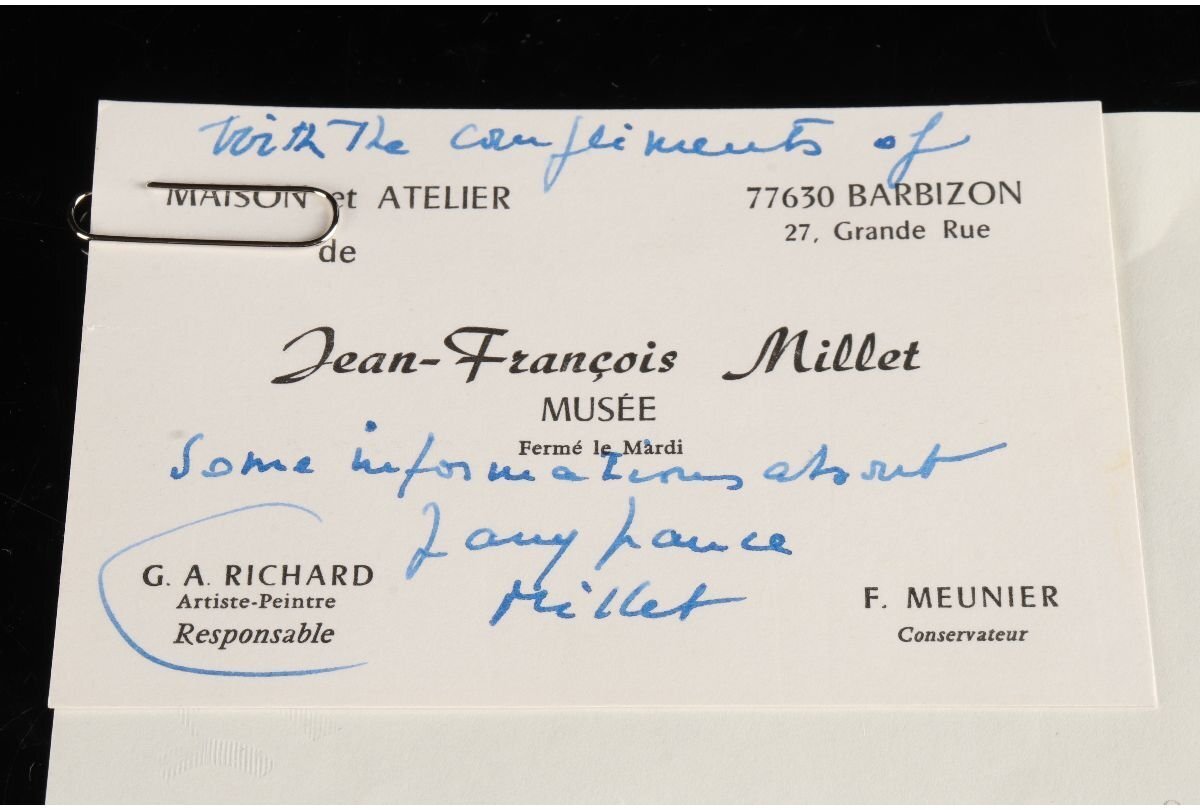 With The compliments of
MAISON et ATELIER
de
77630 BARBIZON
27, Grande Rue
Jean-François Millet
MUSÉE
Fermé le Mardi
Some informations about
Millet
G. A. RICHARD
Artiste-Peintre
Responsable
F. MEUNIER
Conservateur